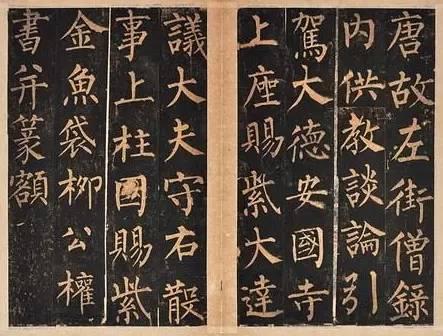 唐故左街僧錄
內供教談論引
駕大德安國寺
上座賜紫大達
議大夫守右散
事上柱國賜紫
金魚袋柳公權
書并篆額